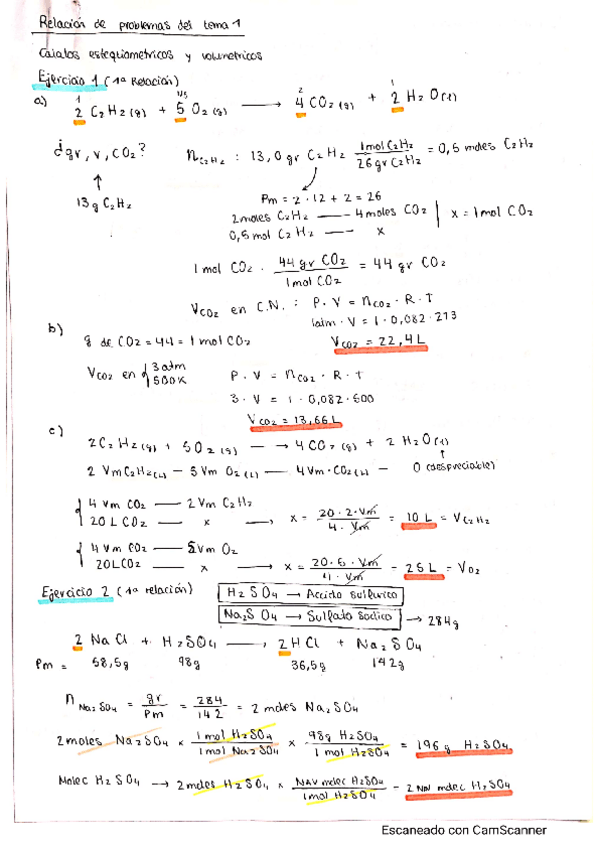 Relación de problemas del tema 1
Calculos estequiometricos y volumetricos
Ejercicio 1 (1ª Relación)
a) 2 C2H2 (g) + 5 O2 (g) → 4 CO2 (g) + 2 H2O (l)
¿gr, V, CO2?
13 g C2H2
nC2H2 : 13,0 gr C2H2 1mol C2H2 / 26 gr C2H2 = 0,5 moles C2H2
Pm = 2 · 12 + 2 = 26
2 moles C2H2 — 4 moles CO2
0,5 mol C2H2 — x
x = 1 mol CO2
1 mol CO2 · 44 gr CO2 / 1 mol CO2 = 44 gr CO2
VCO2 en C.N. : P · V = nCO2 · R · T
1atm · V = 1 · 0,082 · 273
VCO2 = 22,4 L
b) g de CO2 = 44 = 1 mol CO2
VCO2 en { 3 atm
500K
P · V = nCO2 · R · T
3 · V = 1 · 0,082 · 500
VCO2 = 13,66 L
c) 2 C2H2 (g) + 5O2 (g) → 4 CO2 (g) + 2 H2O (l)
2 Vm C2H2 — 5 Vm O2 — 4 Vm · CO2 — 0 (despreciable)
4 Vm CO2 — 2 Vm C2H2
20 L CO2 — x → x = 20 · 2 · Vm / 4 · Vm = 10 L = VC2H2
4 Vm CO2 — 5 Vm O2
20 L CO2 — x → x = 20 · 5 · Vm / 4 · Vm = 25 L = VO2
Ejercicio 2 (1ª relación)
H2SO4 → Acido sulfurico
Na2SO4 → Sulfato sodico → 284g
2 NaCl + H2SO4 → 2 HCl + Na2SO4
Pm = 58,5g 98g 36,5g 142g
n Na2SO4 = gr / Pm = 284 / 142 = 2 moles Na2SO4
2 moles Na2SO4 × 1 mol H2SO4 / 1 mol Na2SO4 × 98g H2SO4 / 1 mol H2SO4 = 196 g H2SO4
Molec H2SO4 → 2 moles H2SO4 × NAV molec H2SO4 / 1mol H2SO4 = 2 NAV molec H2SO4
Escaneado con CamScanner